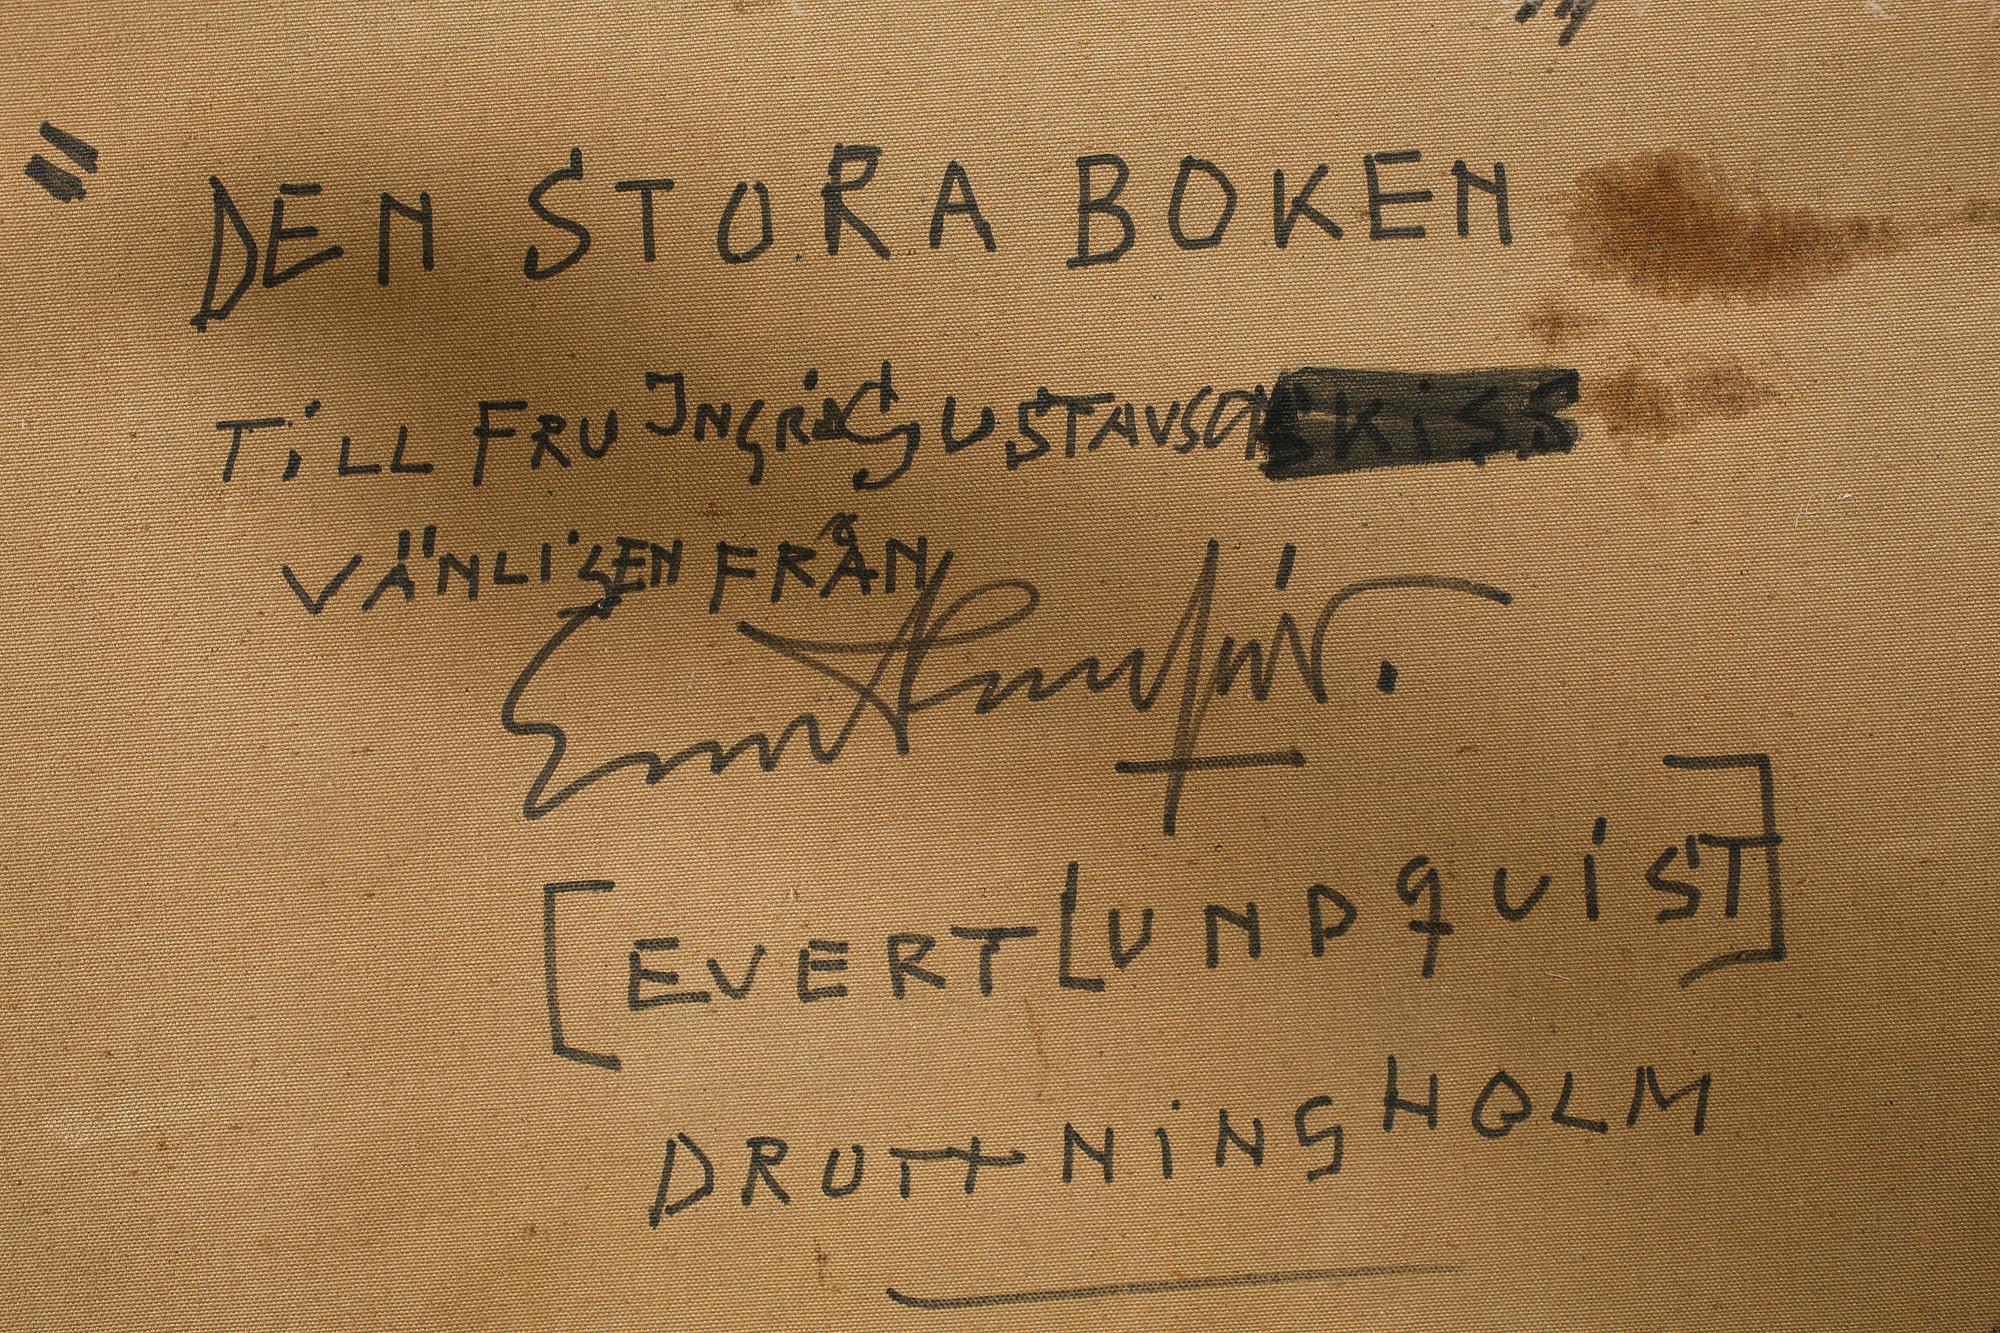 " DEN STORA BOKEN "
TILL FRU INGRID GUSTAVSON SKISS
VÄNLIGEN FRÅN
Evert Lundquist.
[EVERT LUNDQUIST]
DROTTNINGHOLM